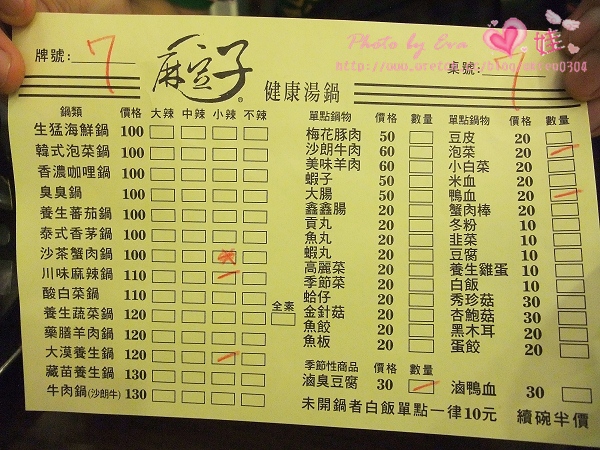 Photo by Eva 娃
牌號: 7
麻豆子®
健康湯鍋
桌號:
鍋類 價格 大辣 中辣 小辣 不辣
生猛海鮮鍋 100
韓式泡菜鍋 100
香濃咖哩鍋 100
臭臭鍋 100
養生蕃茄鍋 100
泰式香茅鍋 100
沙茶蟹肉鍋 100
川味麻辣鍋 110
酸白菜鍋 110
養生蔬菜鍋 120 全素
藥膳羊肉鍋 120
大漠養生鍋 120
藏苗養生鍋 130
牛肉鍋(沙朗牛) 130
單點鍋物 價格 數量
梅花豚肉 50
沙朗牛肉 60
美味羊肉 60
蝦子 50
大腸 50
鑫鑫腸 20
貢丸 20
魚丸 20
蝦丸 20
高麗菜 20
季節菜 20
蛤仔 20
金針菇 20
魚餃 20
魚板 20
季節性商品 價格 數量
滷臭豆腐 30
單點鍋物 價格 數量
豆皮 20
泡菜 20
小白菜 20
米血 20
鴨血 20
蟹肉棒 20
冬粉 10
韭菜 10
豆腐 10
養生雞蛋 10
白飯 10
秀珍菇 30
杏鮑菇 30
黑木耳 20
蛋餃 20
滷鴨血 30
未開鍋者白飯單點一律10元 續碗半價